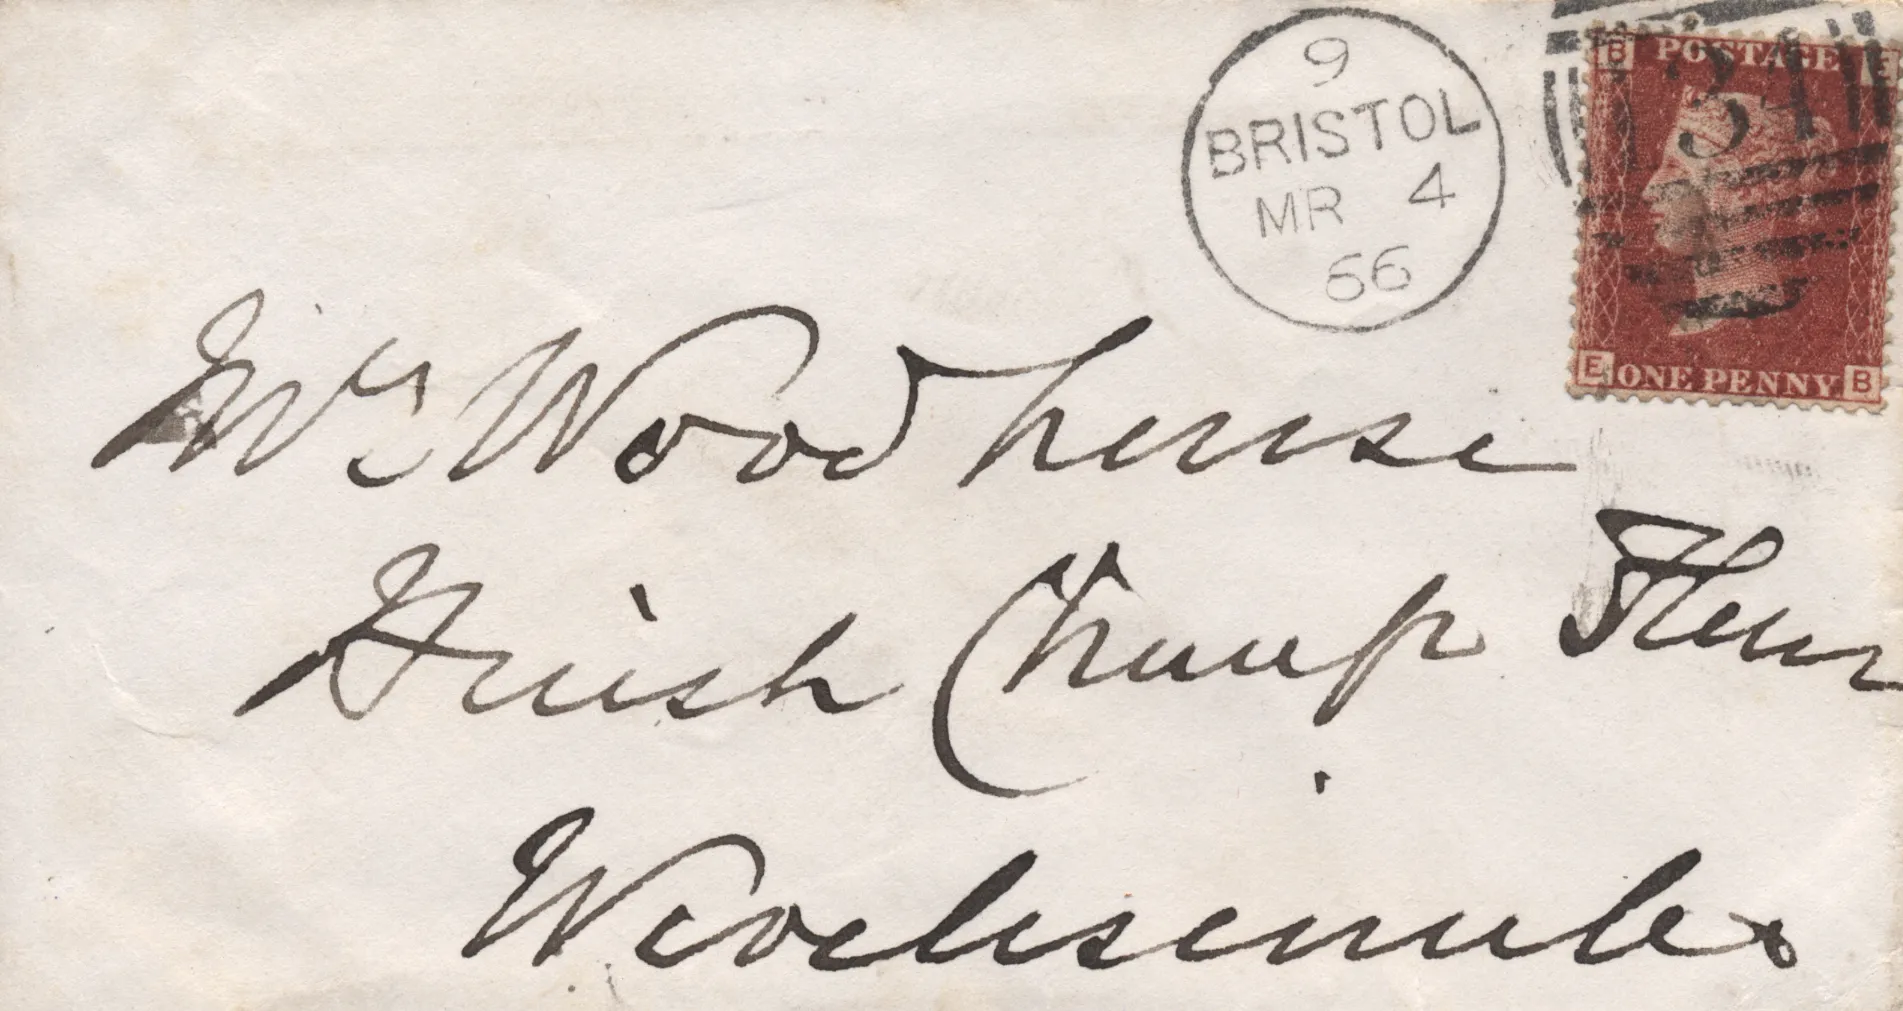 9
BRISTOL
MR 4
66
B POSTAGE E
134
E ONE PENNY. B
Mr Woodhouse
Huish Champ Flower
Wiveliscombe